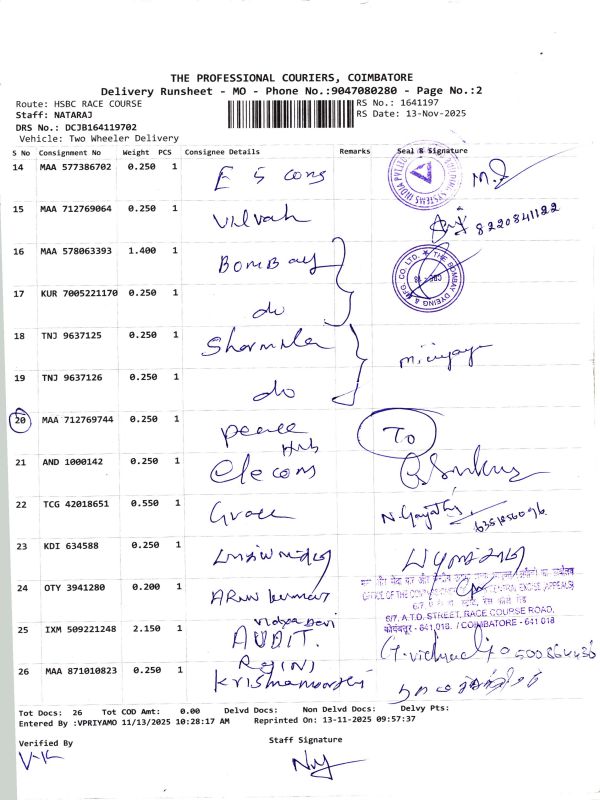 THE PROFESSIONAL COURIERS, COIMBATORE
Delivery Runsheet - MO - Phone No.:9047080280 - Page No.:2
Route: HSBC RACE COURSE RS No.: 1641197
Staff: NATARAJ RS Date: 13-Nov-2025
DRS No.: DCJB164119702
Vehicle: Two Wheeler Delivery
S No Consignment No Weight PCS Consignee Details Remarks Seal & Signature
14 MAA 577386702 0.250 1 E S cons
15 MAA 712769064 0.250 1 Vilvah 8220841122
16 MAA 578063393 1.400 1 Bombay THE BOMBAY DYEING & MFG. CO. LTD.
17 KUR 7005221170 0.250 1 do
18 TNJ 9637125 0.250 1 Sharmila
19 TNJ 9637126 0.250 1 do
20 MAA 712769744 0.250 1 peace Hub To
21 AND 1000142 0.250 1 elecons
22 TCG 42018651 0.550 1 Grace N. Gayathri
23 KDI 634588 0.250 1
24 OTY 3941280 0.200 1 Arun kumar
25 IXM 509221248 2.150 1 AUDIT.
26 MAA 871010823 0.250 1 Krishnamoorthi
6/7, A.T.D. STREET, RACE COURSE ROAD,
कोयंबतूर - 641 018. / COIMBATORE - 641 018
Tot Docs: 26 Tot COD Amt: 0.00 Delvd Docs: Non Delvd Docs: Delvy Pts:
Entered By :VPRIYAMO 11/13/2025 10:28:17 AM Reprinted On: 13-11-2025 09:57:37
Verified By Staff Signature